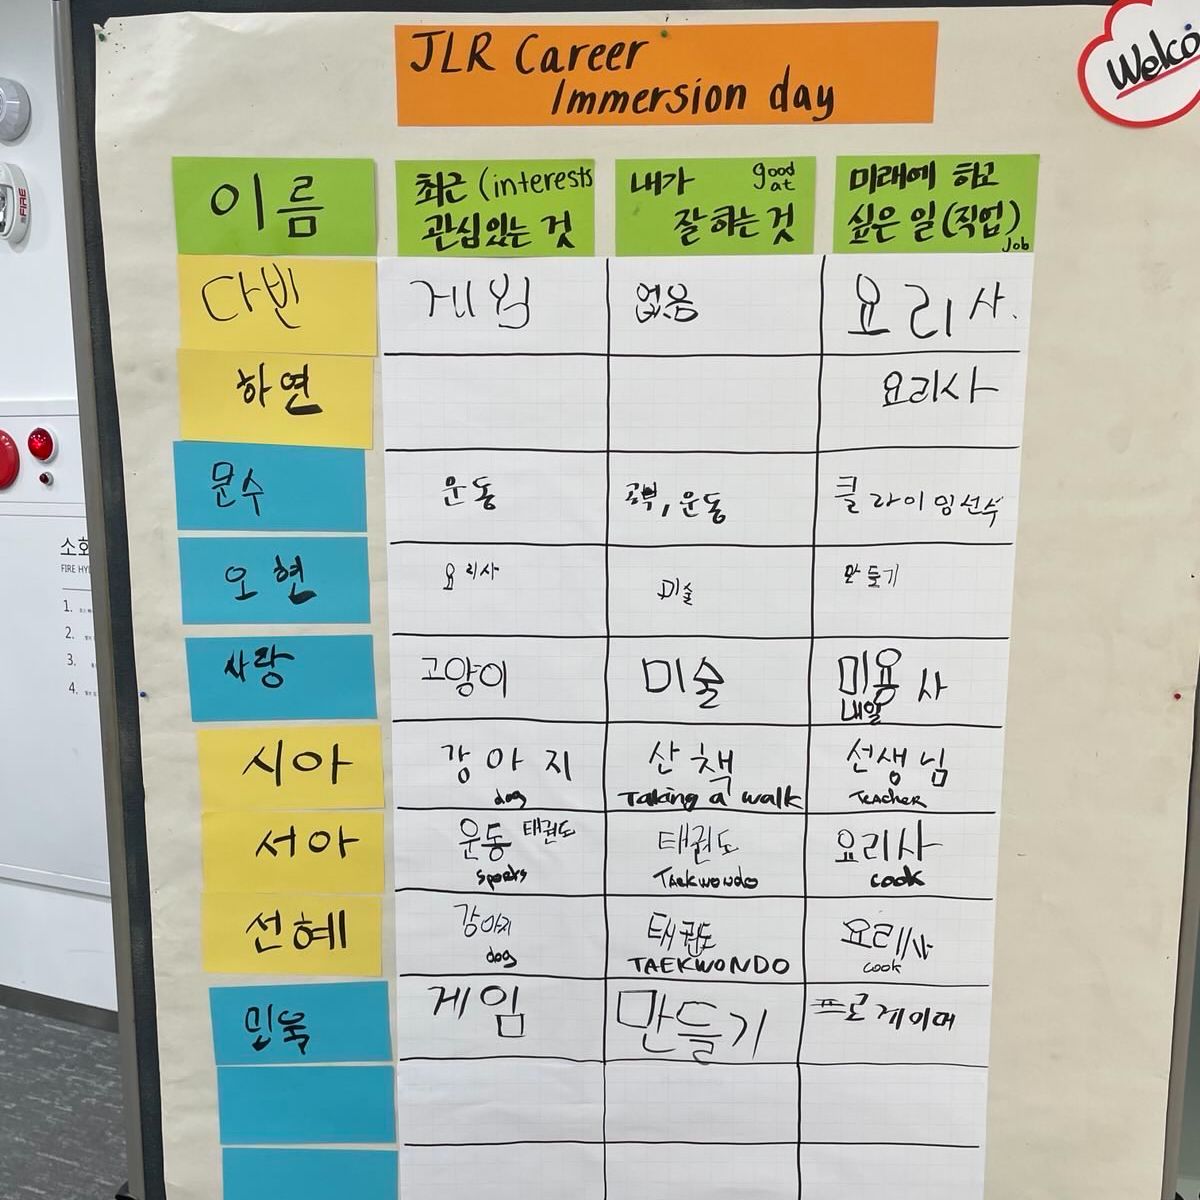 JLR Career
Immersion day
Welco
이름
최근 (interests
관심있는 것
내가 good at
잘 하는 것
미래에 하고
싶은 일 (직업)
Job
다빈
게임
없음
요리사.
하연
요리사
문수
운동
공부, 운동
클라이밍선수
오현
요리사
미술
만들기
사랑
고양이
미술
미용사
내일
시아
강아지
dog
산책
Taking a walk
선생님
TEACHER
서아
운동 태권도
sports
태권도
Taekwondo
요리사
cook
선혜
강아지
dog
태권도
TAEKWONDO
요리사
cook
민욱
게임
만들기
프로게이머
FIRE
소화
FIRE HY
1.
2.
3.
4.